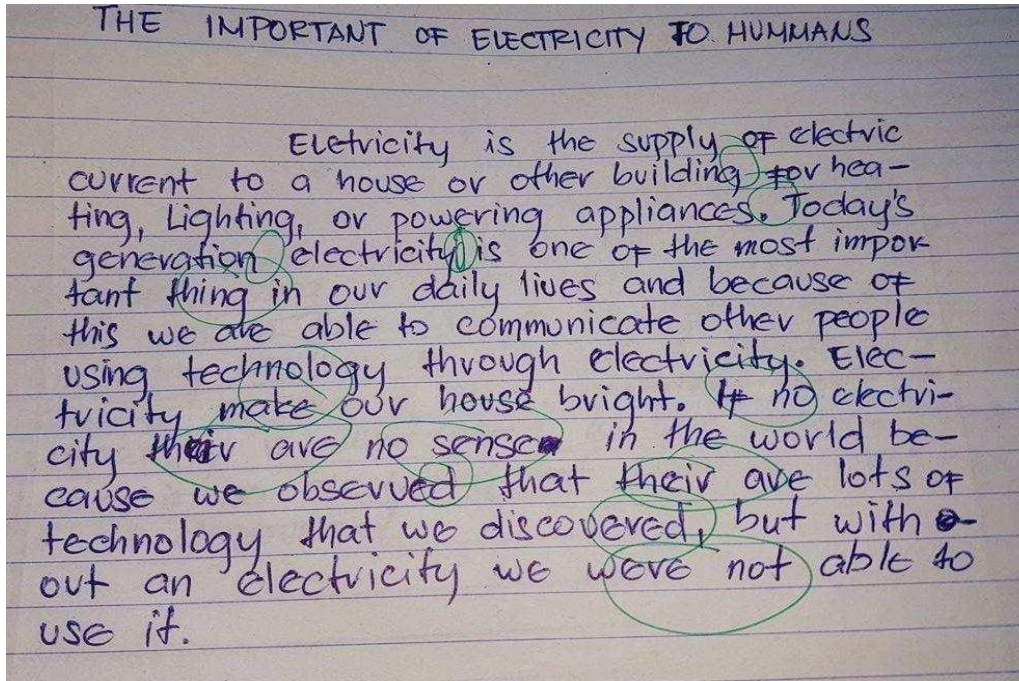 THE IMPORTANT OF ELECTRICITY TO HUMMANS
Eletricity is the supply of electric
current to a house or other building for hea-
ting, Lighting, or powering appliances. Today's
generation electricity is one of the most impor
tant thing in our daily lives and because of
this we are able to communicate other people
using technology through electricity. Elec-
tricity make our house bright. If no electri-
city their are no sense in the world be-
cause we observed that their are lots of
technology that we discovered, but with
out an electricity we were not able to
use it.